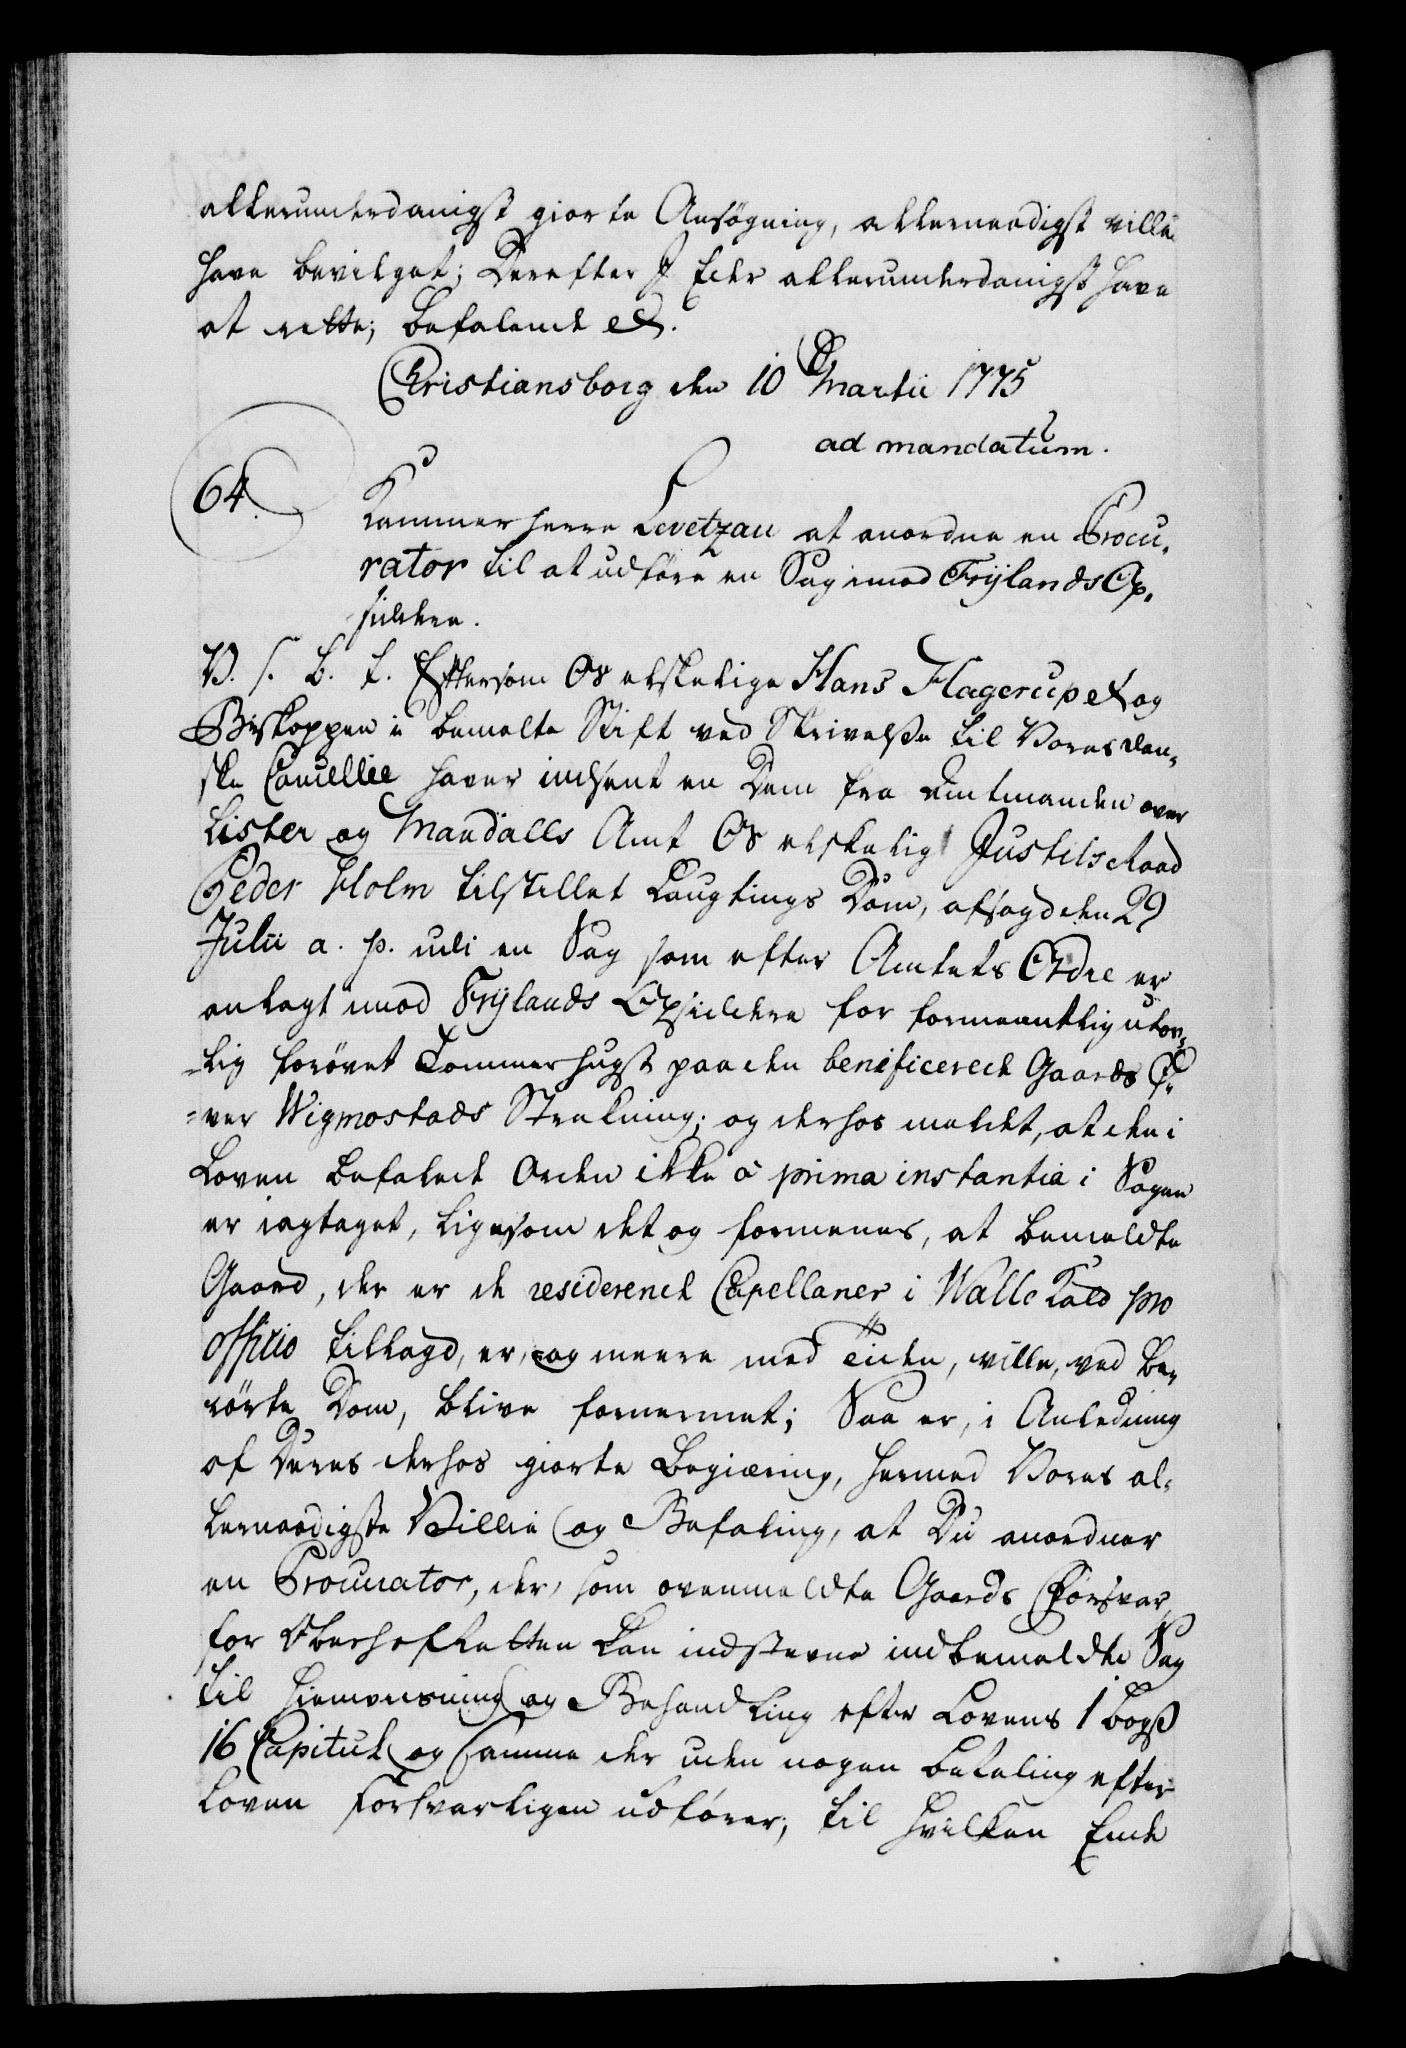 allerunderdanigst giorte Ansøgning, allernaadigst ville
have bevilget; Derefter I Eder allerunderdanigst have
at rette; Befalend etc.
Christiansborg den 10 Martii 1775
ad mandatum.
64. Kammerherre Levetzau at anordne en Procu,
rator til at udføre en Sag imod Frÿlands Op,
siddere.
V. S. B. t. Eftersom Os elskelige Hans Hagerup etc og
Biskoppen i bemelte Stift ved Skrivelse til Vores dan,
ske Cancellie haver indsent en Dem fra Amtmanden over
Lister og Mandalls Amt Os elskelig Justitsraad
Peder Holm tilstillet Laugtings Dom, afsagd den 29
Julii a. p. udi en Sag som efter Amtets Ordre er
anlagt imod Frÿlands Opsiddere for formeentlig ulov,
=lig forøvet Tommerhugst paa den beneficered Gaards Ø,
=ver Wigmostads Strekning; og derhos meldet, at den i
Loven befalede Orden ikke à prima instantia i Sagen
er iagtaget, ligesom det og formenes, at bemeldte
Gaard, der er de residerend Capellaner i Walle Kald pro
officio tillagd, er, og meere med Tiden, ville, ved be,
rørte Dom, blive fornermet; Saa er, i Anledning
af Deres derhos giorte Begiæring, hermed Vores al,
lernaadigste Villie og Befaling, at Du anordner
en Procurator, der, som ovenmeldte Gaards Forsvar,
for Oberhofretten kan indstevne indbemeldte Sag
til Hiemviisning og Behandling efter Lovens 1 Bogs
16 Capitul og samme der uden nogen betaling efter
Loven forsvarligen udfører; til hvilken Ende